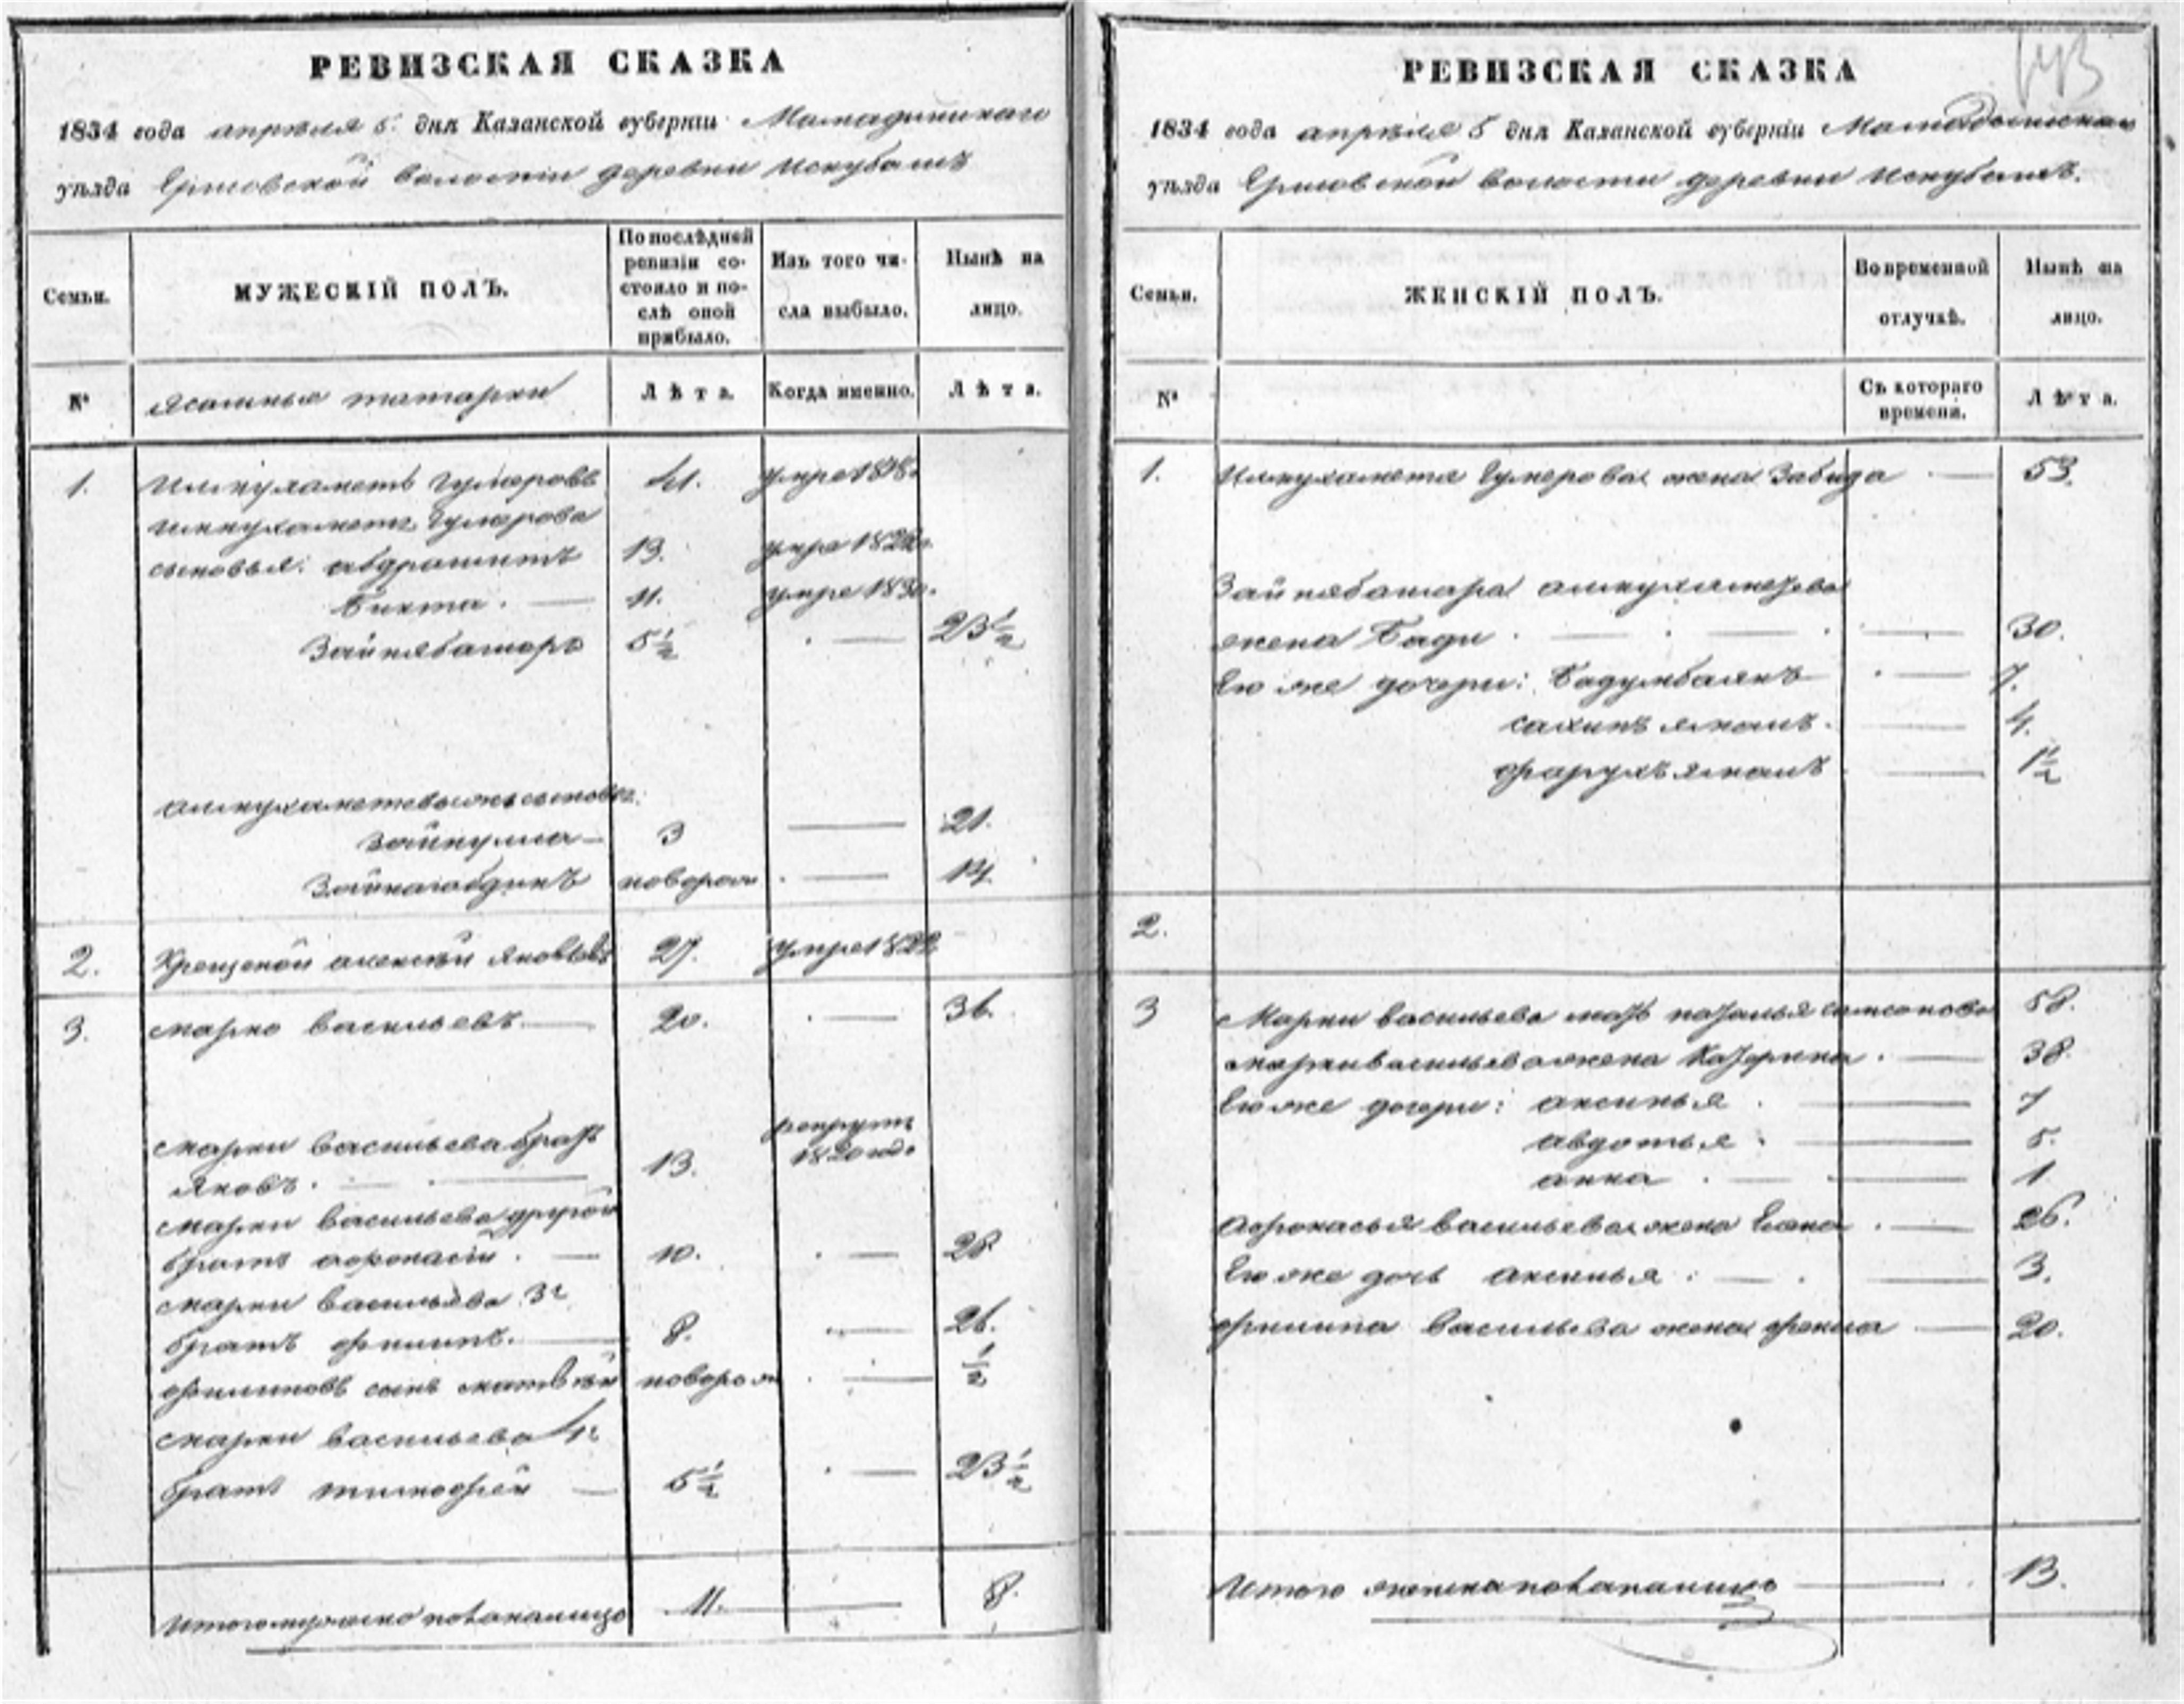 РЕВИЗСКАЯ СКАЗКА
1834 года апреля 5. дня Казанской губерніи Мамадышскаго
уѣзда Ершовской волости деревни Искубашъ
Семьи.
МУЖЕСКІЙ ПОЛЪ.
По послѣдней
ревизіи со-
стояло и по-
слѣ оной
прибыло.
Изъ того чи-
сла выбыло.
Нынѣ на
лицо.
№
ясашныя татары
Лѣта.
Когда именно.
Лѣта.
1. Гумеровъ 41. умре 1818.
Гумерова
сыновья: абдрашитъ 13. умре
Бикта. 11. умре 1830.
Зайнябашаръ 5½ 23½
сыновья:
3 21.
14.
2. Крещеной алексѣй яковлевъ 27. умре
3. марко васильевъ 20. 36.
марки васильева братъ рекрутъ
яковъ. 13. 1820 года
марки васильева другой
братъ афонасій. 10. 28
марки васильева 3й
братъ филипъ. 8. 26.
филиповъ сынъ матвѣй новорож ½
марки васильева 4й
братъ тимофей 5½ 23½
Итого мужеска пола на лицо 11. 8.
РЕВИЗСКАЯ СКАЗКА
1834 года апрѣля 5 дня Казанской губерніи
уѣзда Ершовской волости деревни Искубашъ.
Семьи.
ЖЕНСКІЙ ПОЛЪ.
Во временной
отлучкѣ.
Нынѣ на
лицо.
№
Съ котораго
времени.
Лѣта.
1. Гумерова жена Забида 53.
Зайнябашара
жена Бади 30.
Ево же дочери: Бадумбаянъ 7.
4.
1½
2.
3 Марки васильева мать наталья самсонова 58.
марки васильева жена Катерина. 38
Ево же дочери: аксинья. 7
авдотья. 5.
анна. 1
Афонасья васильева жена 26.
Ево же дочь аксинья. 3.
филипа васильева жена фекла 20.
Итого женска пола на лицо 13.